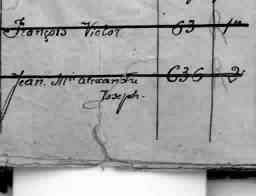 François Victor 63 1ᵉ
Jean. Mie alexandre 636 2
Joseph.